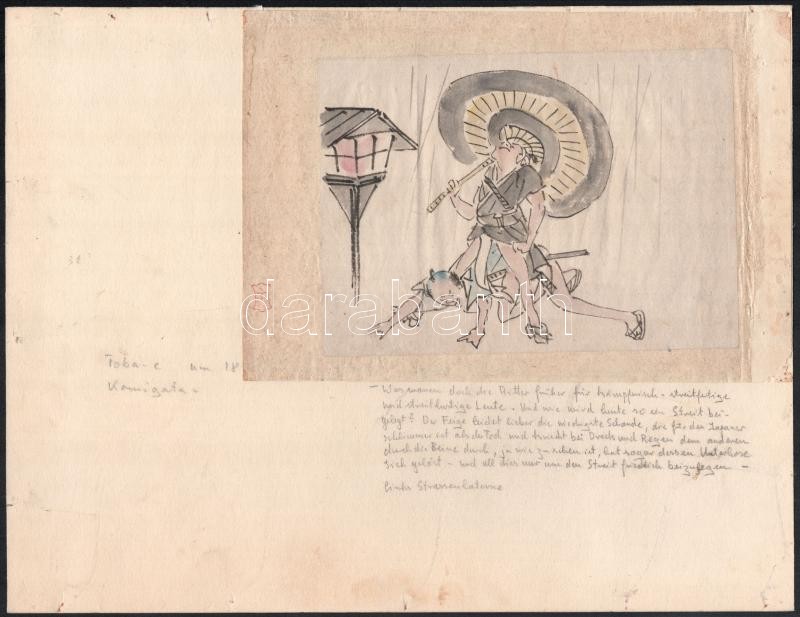 32
Toba-e um 18
Kamigata -
darabanth
- Was waren doch die Ritter früher für kämpferisch - streitfertige
und streitlustige Leute. Und wie wird heute so ein Streit bei-
gelegt? Der Feige leidet lieber die niedrigste Schande, die für den Japaner
schlimmer ist als der Tod und kriecht bei Dreck und Regen dem anderen
durch die Beine durch, ja wie zu sehen ist, hat sogar dessen Unterhose
sich gelöst - und all dies nur um den Streit friedlich beizulegen -
links Strassenlaterne